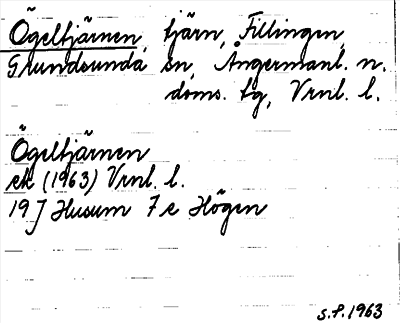 Ögeltjärnen, tjärn, Fillingen,
Grundsunda sn, Ångermanl. n.
doms. tg, Vrnl. l.
Ögeltjärnen
ek (1963) Vrnl. l.
19 J Husum 7 e Högen
S.P. 1963